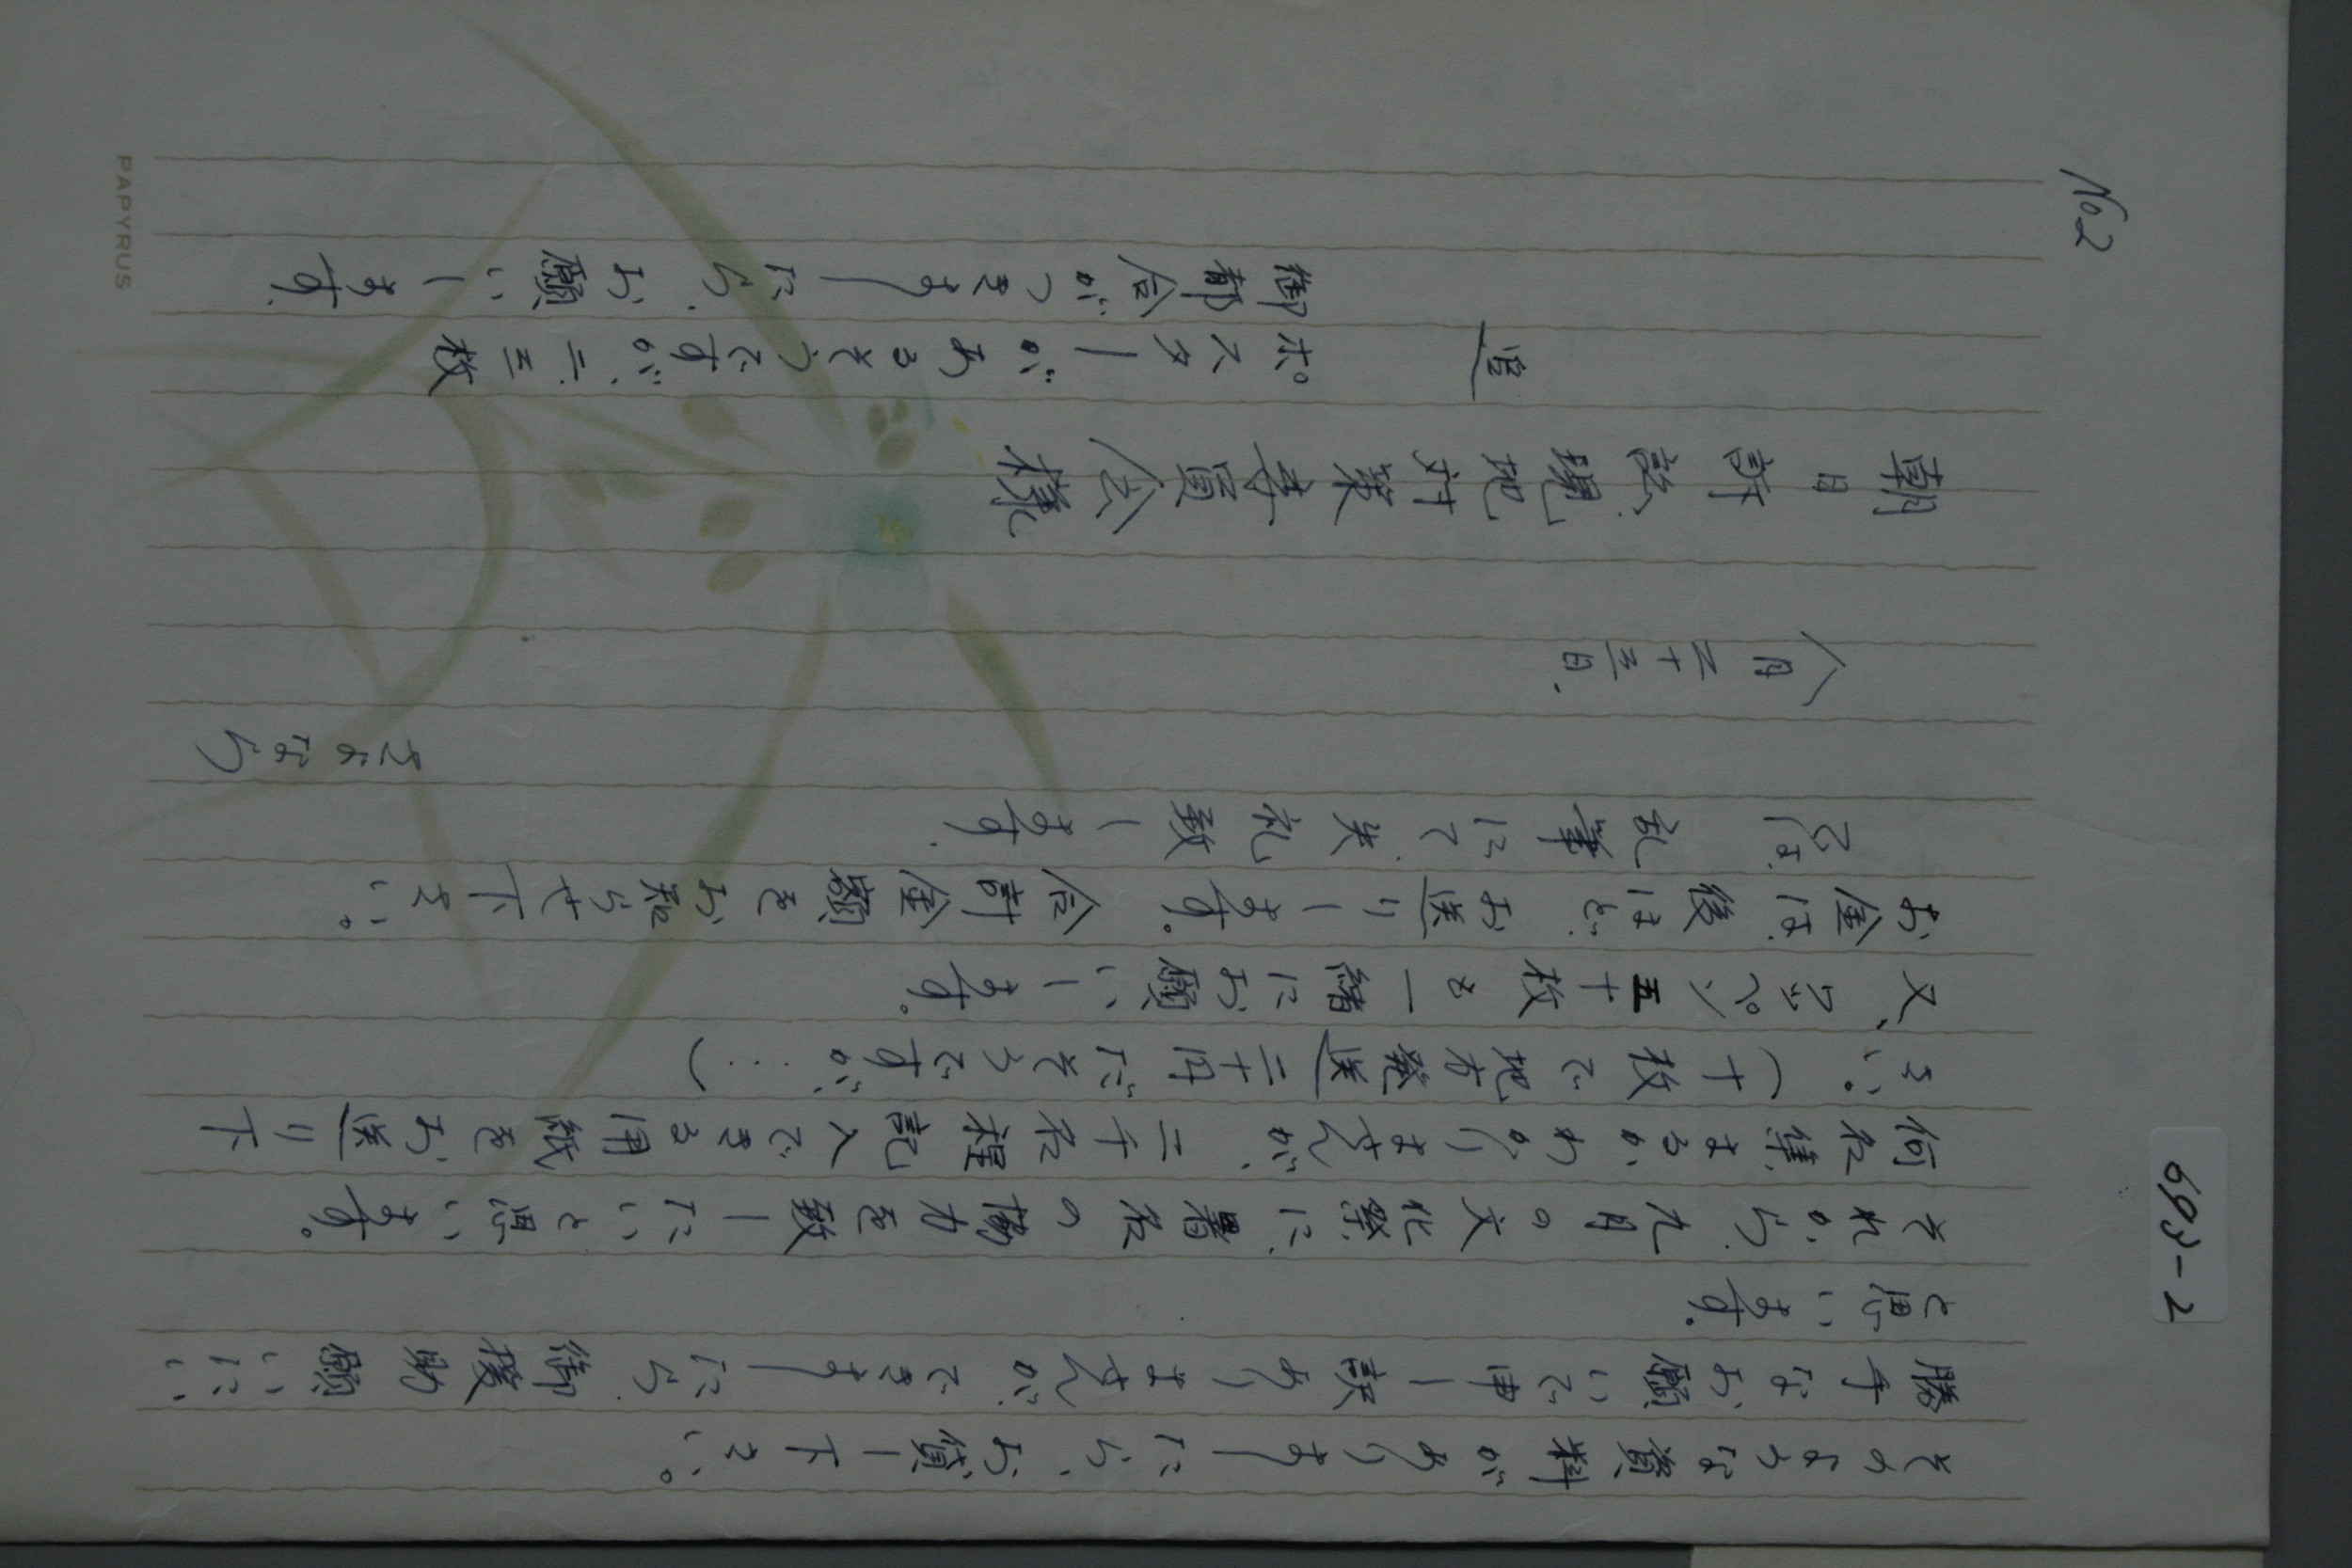 No.2
そのような資料がありましたら、お貸し下さい。
勝手なお願いで申し訳ありませんが、できましたら、御援助願いたい
と思います。
それから、九月の文化祭に、署名の協力を致したいと思います。
何名集まるかわかりませんが、二千名程記入できる用紙をお送り下
さい。(十枚で地方発送二十円だそうですが…)
又、ワッペン五十枚も一緒にお願いします。
お金は、後ほど、お送りします。合計金額をお知らせ下さい。
では、乱筆にて、失礼致します。
さよなら
八月二十三日.
朝日訴訟現地対策委員会様
追 ポスターがあるそうですが、二、三枚
御都合がつきましたら、お願いします.
693-2
PAPYRUS